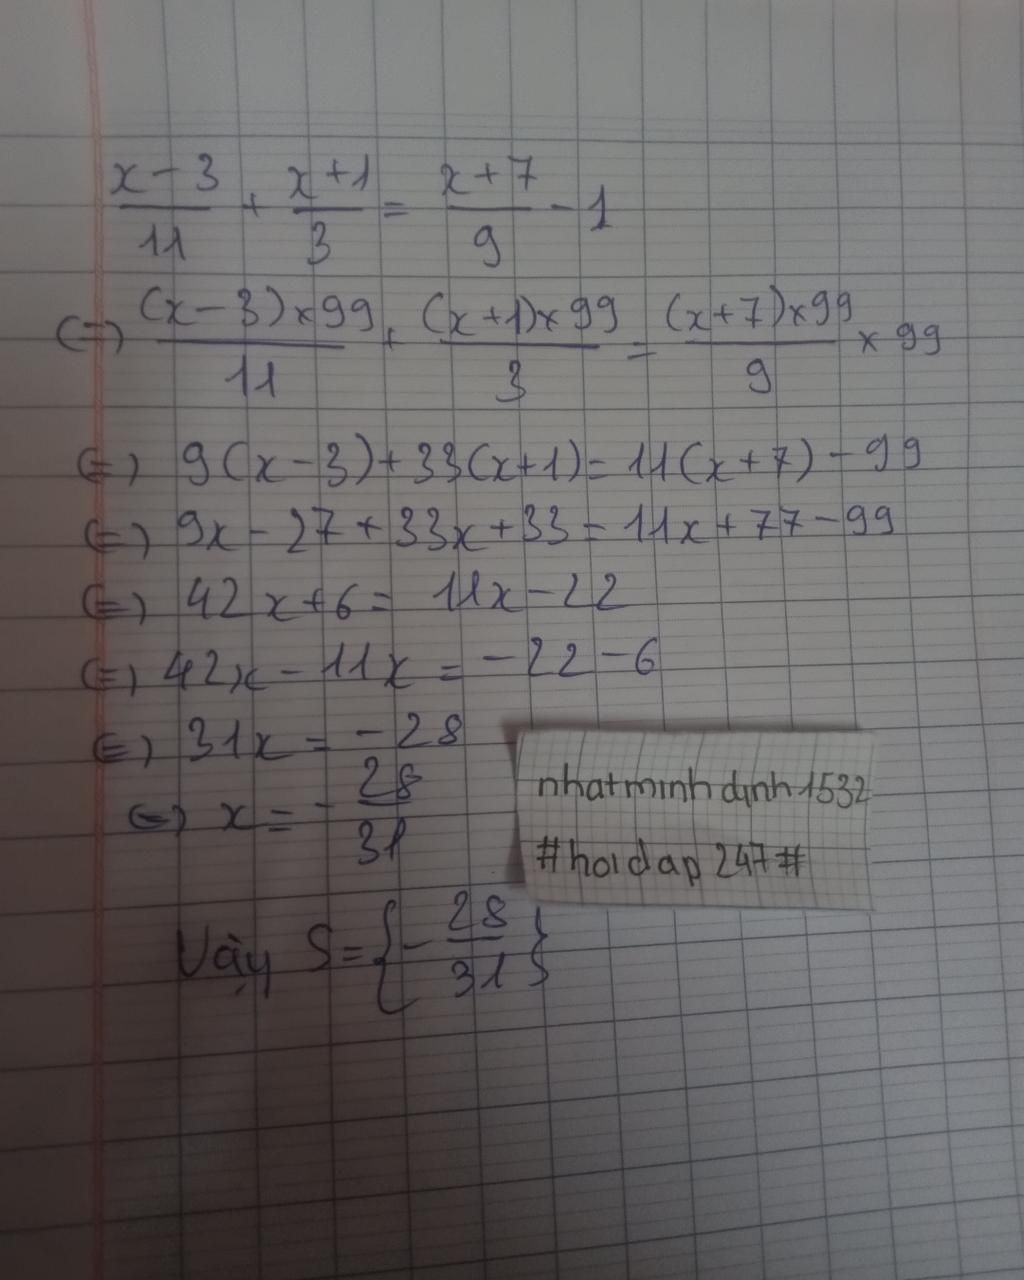 x-3/11 + x+1/3 = x+7/9 - 1
(=) (x-3)×99/11 + (x+1)×99/3 = (x+7)×99/9 × 99
(=) 9(x-3)+33(x+1)=11(x+7)-99
(=) 9x-27+33x+33=11x+77-99
(=) 42x+6= 11x-22
(=) 42x-11x = -22-6
(=) 31x = -28
(=) x = - 28/31
nhatminhdinh1532
#hoidap247#
Vậy S={-28/31}